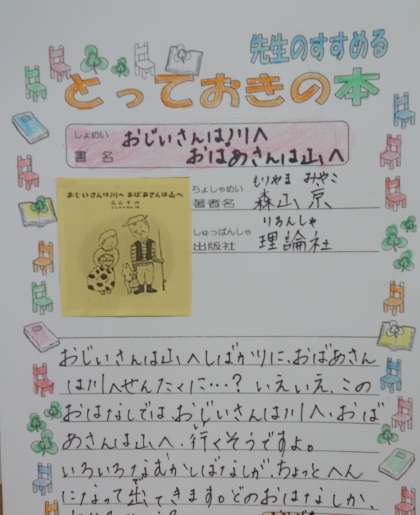 先生のすすめる
とっておきの本
しょめい
書名
おじいさんは川へ
おばあさんは山へ
おじいさんは川へ おばあさんは山へ
ちょしゃめい
著者名
もりやま みやこ
森山 京
しゅっぱんしゃ
出版社
りろんしゃ
理論社
おじいさんは山へしばかりに、おばあさん
は川へせんたくに…？いえいえ、この
おはなしでは、おじいさんは川へ、おば
あさんは山へ、行くそうですよ。
いろいろなむかしばなしが、ちょっとへん
になって出てきます。どのおはなしか、